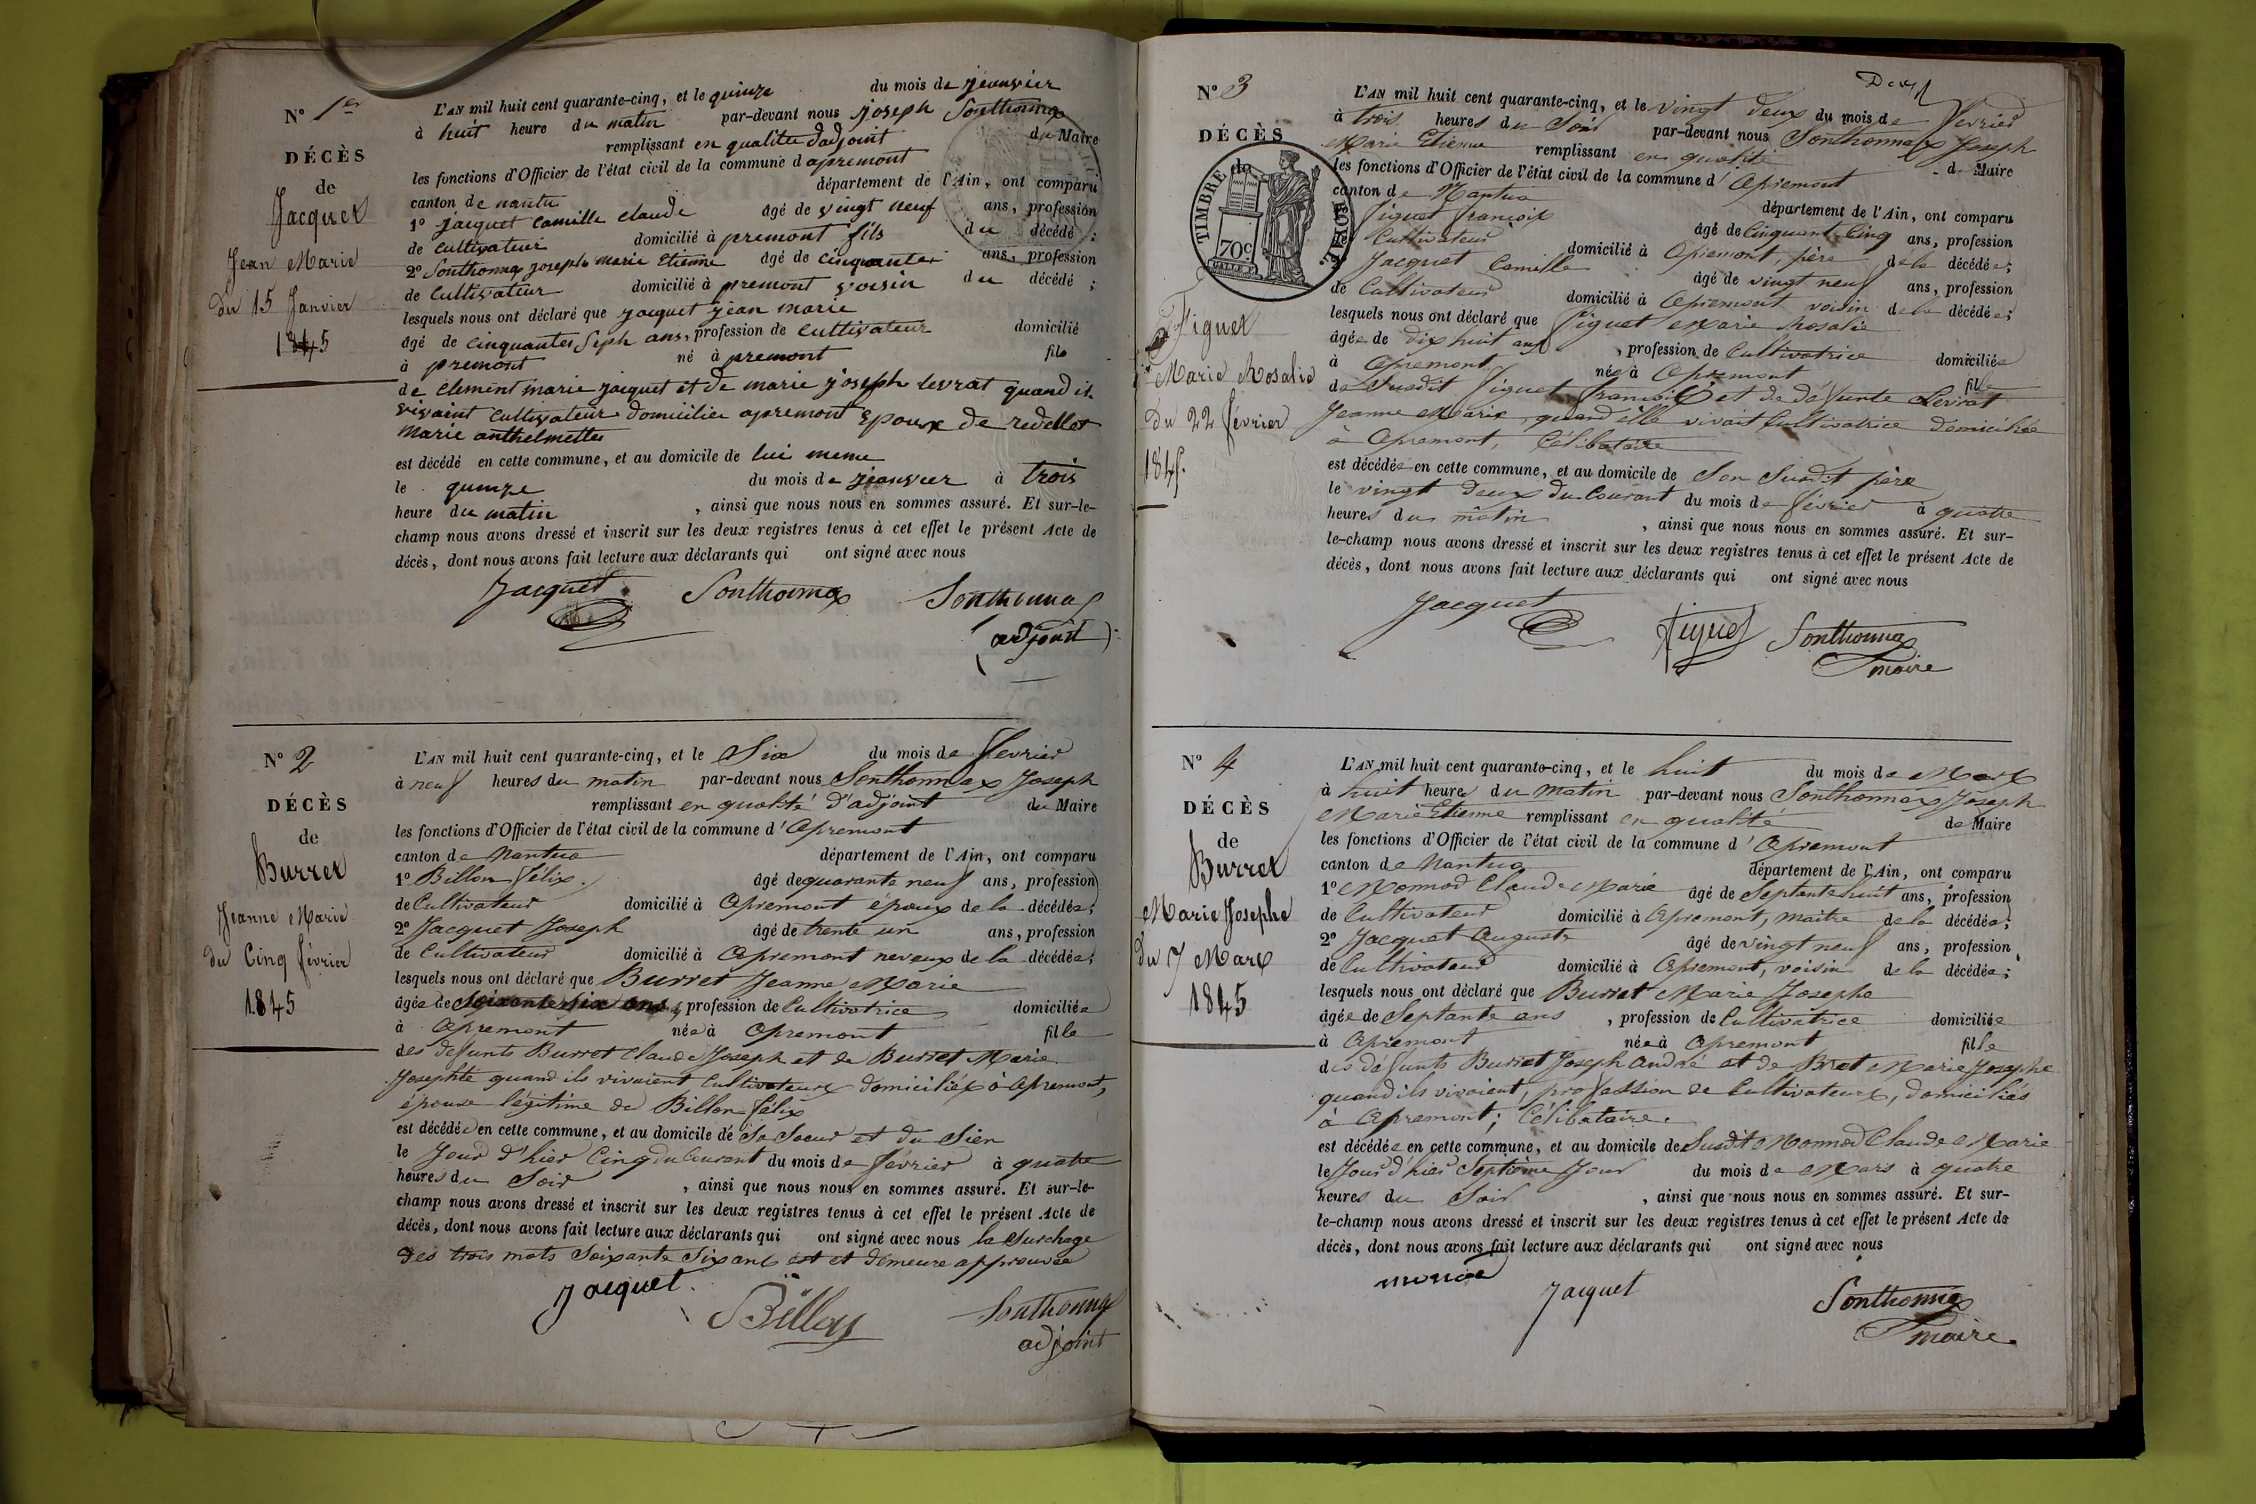 N° 1er
DÉCÈS
de
Jacquet
Jean Marie
du 15 Janvier
1845
L'AN mil huit cent quarante-cinq, et le quinze du mois de jeanvier
à huit heure du matin par-devant nous joseph Sonthonnax
remplissant en qualitée dadjoint du Maire
les fonctions d'Officier de l'état civil de la commune d apremont
canton de nantu département de l'Ain, ont comparu
1° jacquet Camille claude âgé de vingt neuf ans, profession
de cultivateur domicilié à premont fils du décédé ;
2° Sonthonnax joseph marie Etienne âgé de cinquante ans, profession
de cultivateur domicilié à premont voisin du décédé ;
lesquels nous ont déclaré que jacquet jean marie
âgé de cinquantes Seph ans, profession de cultivateur domicilié
à premont né à premont fils
de clement marie jacquet et de marie joseph levrat quand il
vivaint cultivateur domicilier apremont Epoux de redellet
marie anthelmette
est décédé en cette commune, et au domicile de lui meme
le quinze du mois de jeanvier à trois
heure du matin, ainsi que nous nous en sommes assuré. Et sur-le-
champ nous avons dressé et inscrit sur les deux registres tenus à cet effet le présent Acte de
décès, dont nous avons fait lecture aux déclarants qui ont signé avec nous
Jacquet Sonthonnax Sonthonnax
adjoint
N° 2
DÉCÈS
de
Burret
Jeanne Marie
du Cinq février
1845
L'AN mil huit cent quarante-cinq, et le Six du mois de fevrier
à neuf heures du matin par-devant nous Sonthonnax Joseph
remplissant en qualité d'adjoint du Maire
les fonctions d'Officier de l'état civil de la commune d'Apremont
canton de Nantua département de l'Ain, ont comparu
1° Billon félix. âgé de quarante neuf ans, profession
de Cultivateur domicilié à Apremont époux de la décédée ;
2° Jacquet Joseph âgé de trente un ans, profession
de Cultivateur domicilié à Apremont neveux de la décédée ;
lesquels nous ont déclaré que Burret Jeanne Marie
âgée de Soixante six ans, profession de Cultivatrice domiciliée
à Apremont née à Apremont fille
des defunts Burret Claude Joseph et de Burret Marie
Josephte quand ils vivaient Cultivateurs domiciliés à Apremont,
épouse légitime de Billon félix
est décédée en cette commune, et au domicile de Sa Soeur et du Sien
le Jour d'hier Cinq du Courant du mois de février à quatre
heures du Soir, ainsi que nous nous en sommes assuré. Et sur-le-
champ nous avons dressé et inscrit sur les deux registres tenus à cet effet le présent Acte de
décès, dont nous avons fait lecture aux déclarants qui ont signé avec nous la Surchage
des trois mots Soixante Six ans est et demeure approuvée
Jacquet Billon Sonthonnax
adjoint
N° 3
DÉCÈS
TIMBRE ROYAL
70c.
Figuet
Marie Rosalie
du 22 février
1845.
L'AN mil huit cent quarante-cinq, et le vingt deux du mois de fevrier
à trois heures du Soir par-devant nous Sonthonnax Joseph
Marie Etienne remplissant en qualité de Maire
les fonctions d'Officier de l'état civil de la commune d'Apremont
canton de Nantua département de l'Ain, ont comparu
figuet françois âgé de Cinquant Cinq ans, profession
Cultivateur domicilié à Apremont, père de la décédée ;
Jacquet Camille âgé de vingt neuf ans, profession
de Cultivateur domicilié à Apremont voisin de la décédée ;
lesquels nous ont déclaré que figuet Marie Rosalie
âgée de dix huit ans, profession de Cultivatrice domiciliée
à Apremont née à Apremont fille
de Susdit figuet françois et de défunte Levrat
Jeanne Marie, quand elle vivait Cultivatrice domiciliée
à Apremont, Célibataire
est décédée en cette commune, et au domicile de Son Susdit père
le vingt deux du Courant du mois de février à quatre
heures du matin, ainsi que nous nous en sommes assuré. Et sur-
le-champ nous avons dressé et inscrit sur les deux registres tenus à cet effet le présent Acte de
décès, dont nous avons fait lecture aux déclarants qui ont signé avec nous
Jacquet figuet Sonthonnax
maire
N° 4
DÉCÈS
de
Burret
Marie Josephe
du 7 Mars
1845
L'AN mil huit cent quarante-cinq, et le huit du mois de Mars
à huit heures du matin par-devant nous Sonthonnax Joseph
Marie Etienne remplissant en qualité de Maire
les fonctions d'Officier de l'état civil de la commune d'Apremont
canton de Nantua département de l'Ain, ont comparu
1° Monnod Claude Marie âgé de Septante huit ans, profession
de Cultivateur domicilié à Apremont, maitre de la décédée ;
2° Jacquet Auguste âgé de vingt neuf ans, profession
de Cultivateur domicilié à Apremont, voisin de la décédée ;
lesquels nous ont déclaré que Burret Marie Josephe
âgée de Septante ans, profession de Cultivatrice domiciliée
à Apremont née à Apremont fille
des défunts Burret Joseph André et de Bret Marie Josephe
quand ils vivaient, profession de Cultivateurs, domiciliés
à Apremont ; Célibataire.
est décédée en cette commune, et au domicile de Susdit Monnod Claude Marie
le Jour d'hier Septième Jour du mois de Mars à quatre
heures du Soir, ainsi que nous nous en sommes assuré. Et sur-
le-champ nous avons dressé et inscrit sur les deux registres tenus à cet effet le présent Acte de
décès, dont nous avons fait lecture aux déclarants qui ont signé avec nous
monod Jacquet Sonthonnax
maire